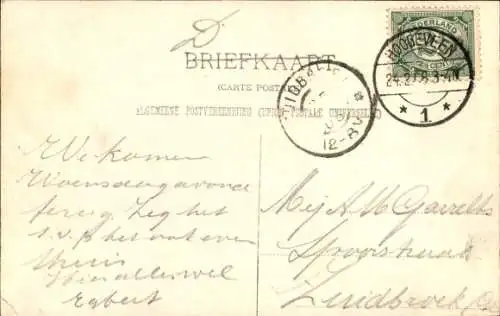 D
BRIEFKAART
(CARTE POSTALE)
ALGEMEENE POSTVEREENIGING (UNION POSTALE UNIVERSELLE)
NEDERLAND
2½ CENT
HOOGEVEEN
* 1 *
12-8V
We komen
Woensdagavond
terug. Zeg het
s.v.p. het ook even
thuis
Hier alles wel
Egbert
Mej A W Garrelts
Spoorstraat
Zuidbroek